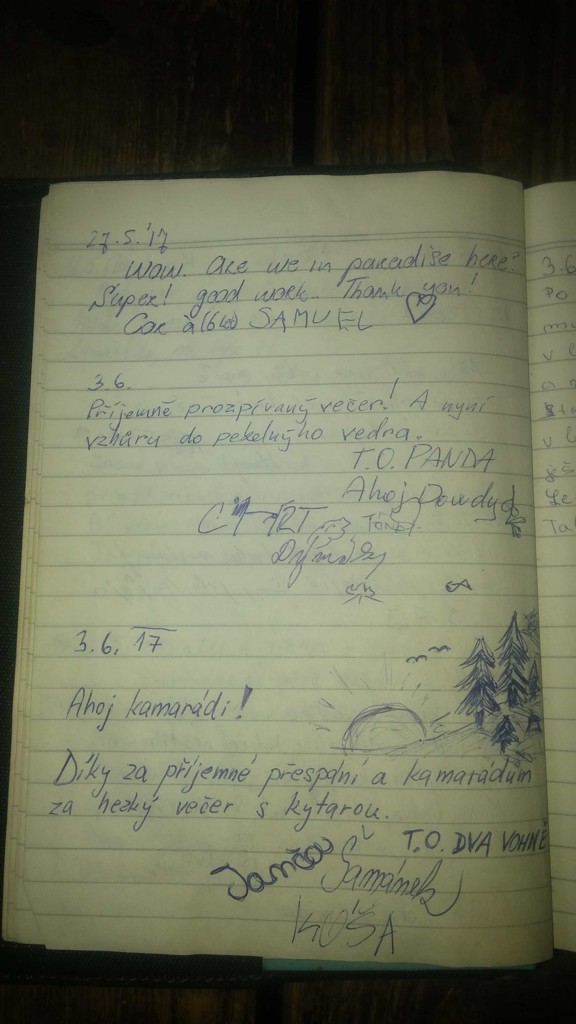 27.5.'17
Wow. Are we in paradise here?
Super! good work. Thank you!
SAMUEL
3.6.
Příjemně prozpívaný večer! A nyní
vzhůru do pekelnýho vedra.
T.O. PANDA
Ahoj
3.6. 17
Ahoj kamarádi!
Díky za příjemné přespání a kamarádům
za hezký večer s kytarou.
T.O. DVA VOHNĚ
Šamánek
KÓŠA
3.6
Po
v l
v l
Le
Ta